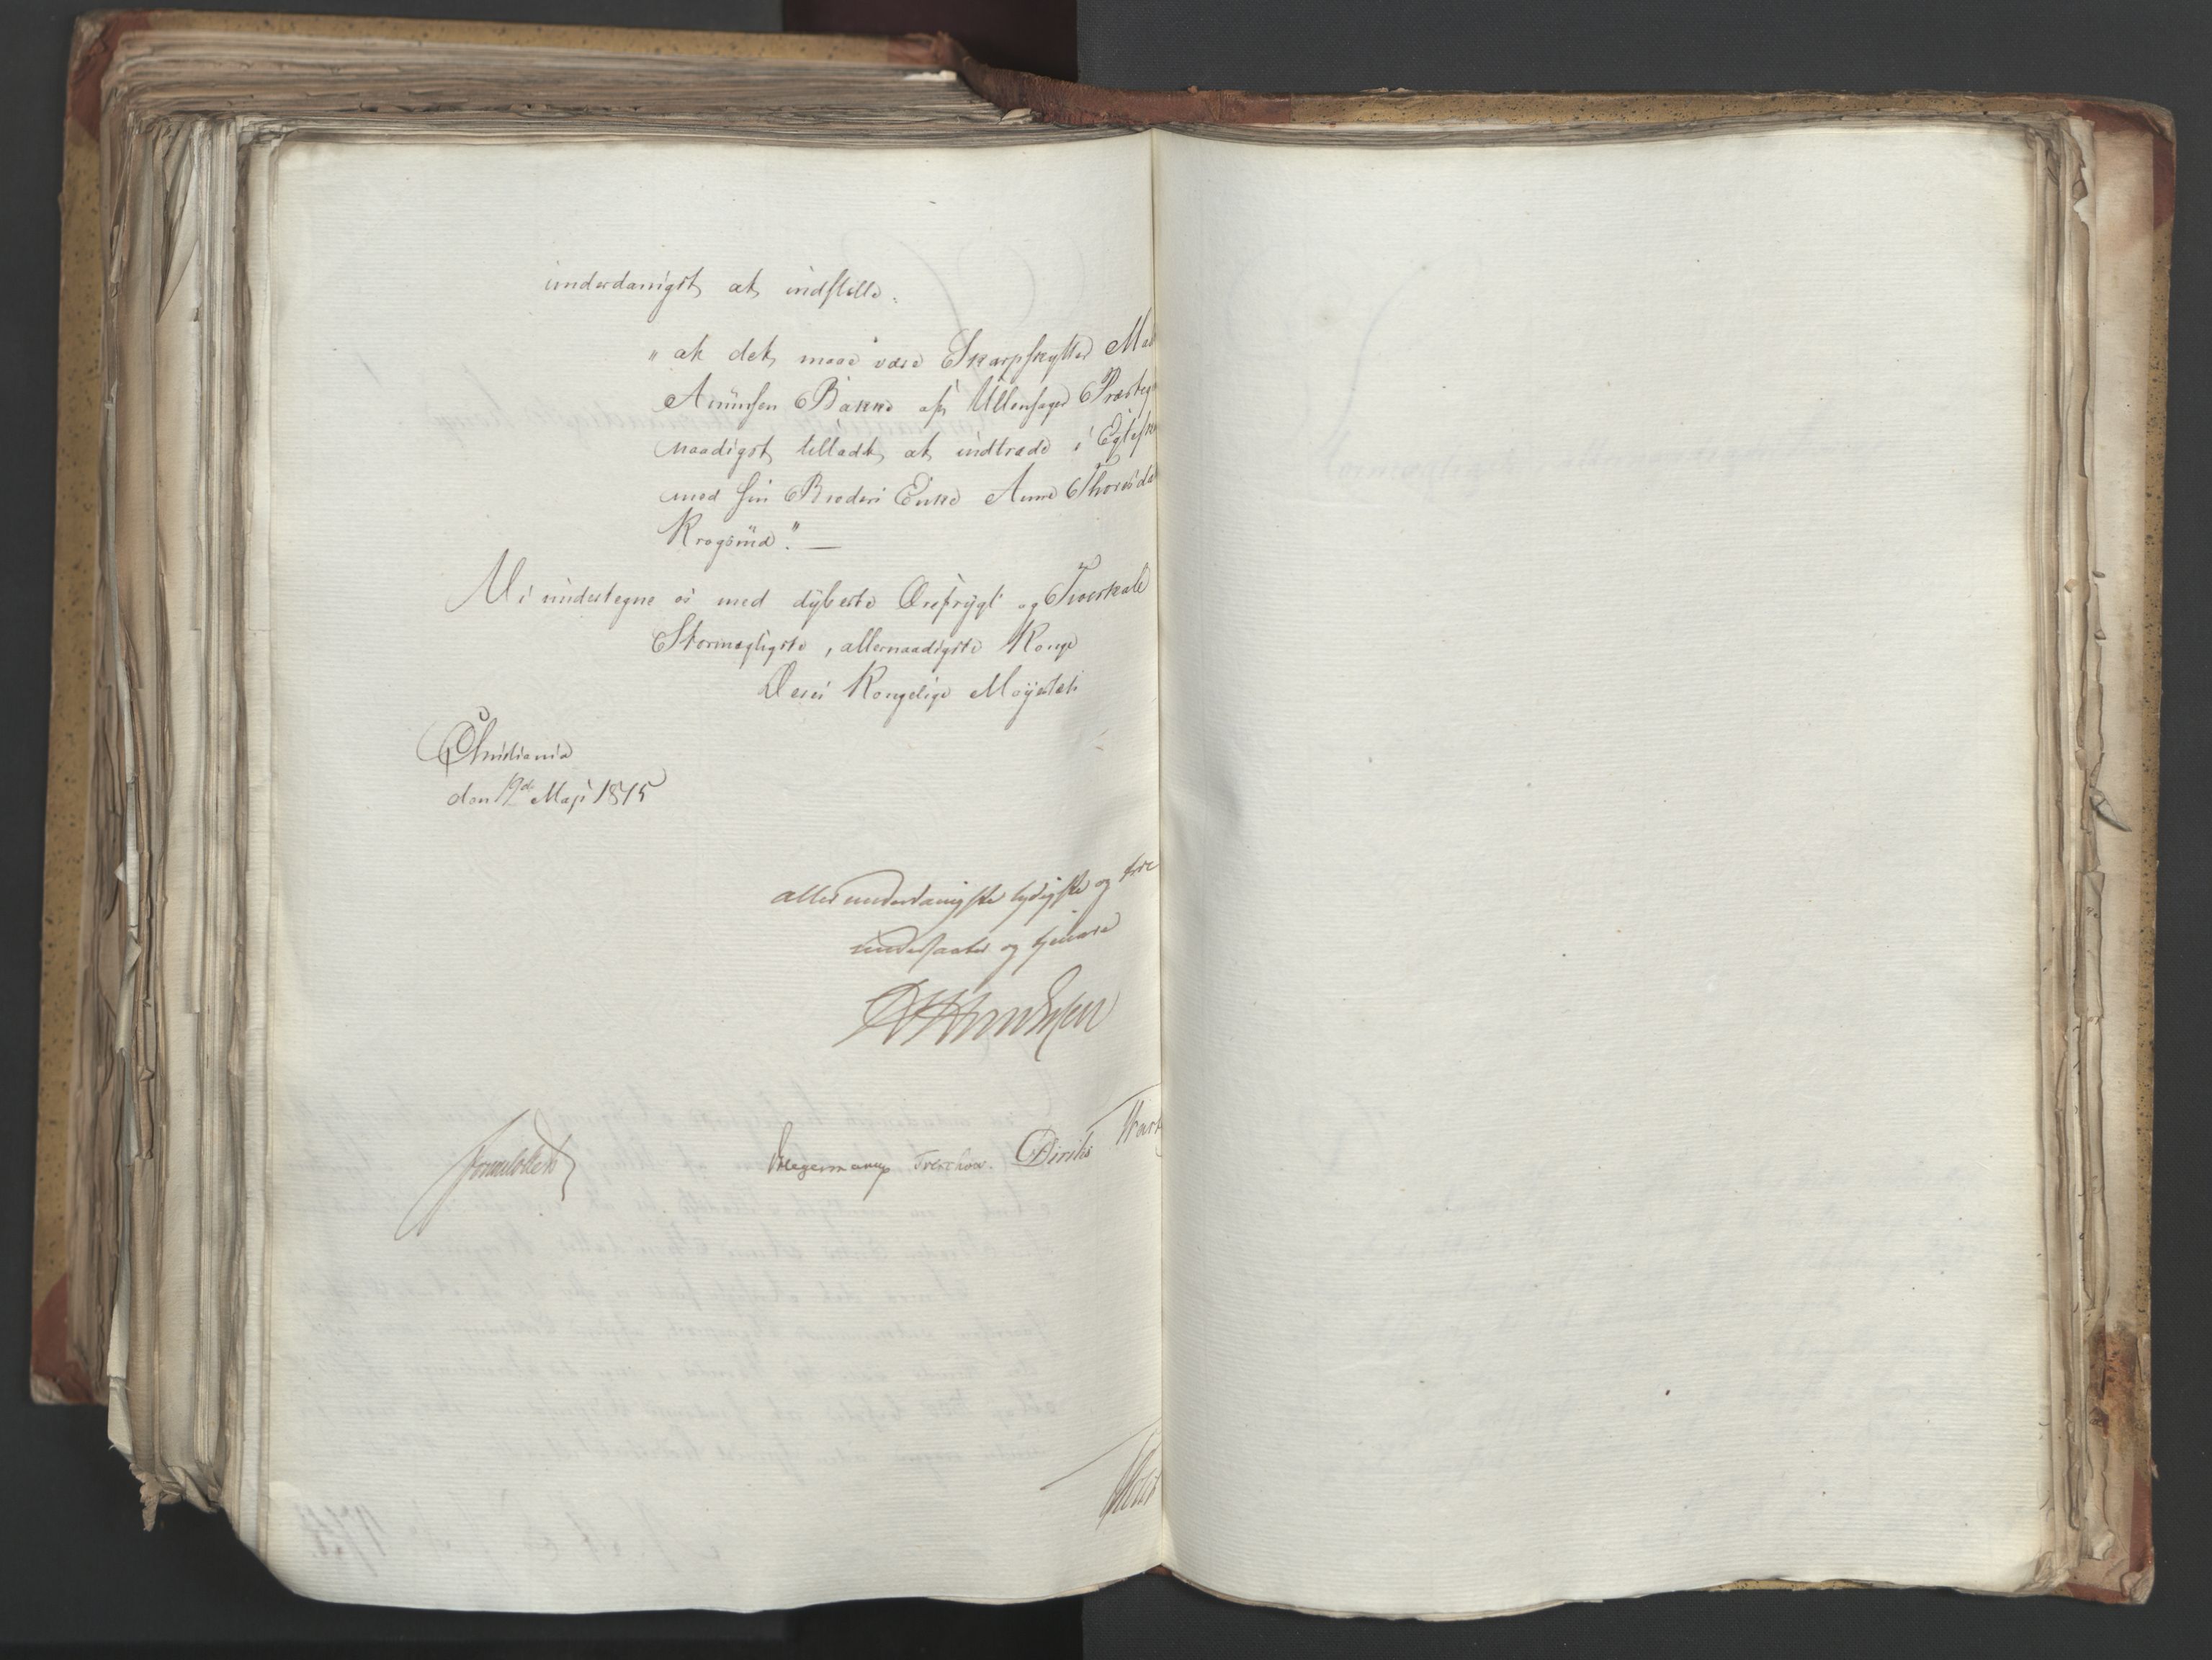 underdanigst at indstille.
" at det maae være Skarpskytter
Amunsen Bakke af Ullensager
naadigst tilladt at indtræde i
med sin Broders Enke Anne
Krogsund". —
Vi undertegne os med dybeste Ærefrygt og Troeskab
Stormægtigste, allernaadigste Konge
Deres Kongelige Majestæts
Christiania
den 19de Maji 1815
allerunderdanigste lydigste og
undersaatter og tjenere
Sommerfeldt Hegermann Treschow. Diriks